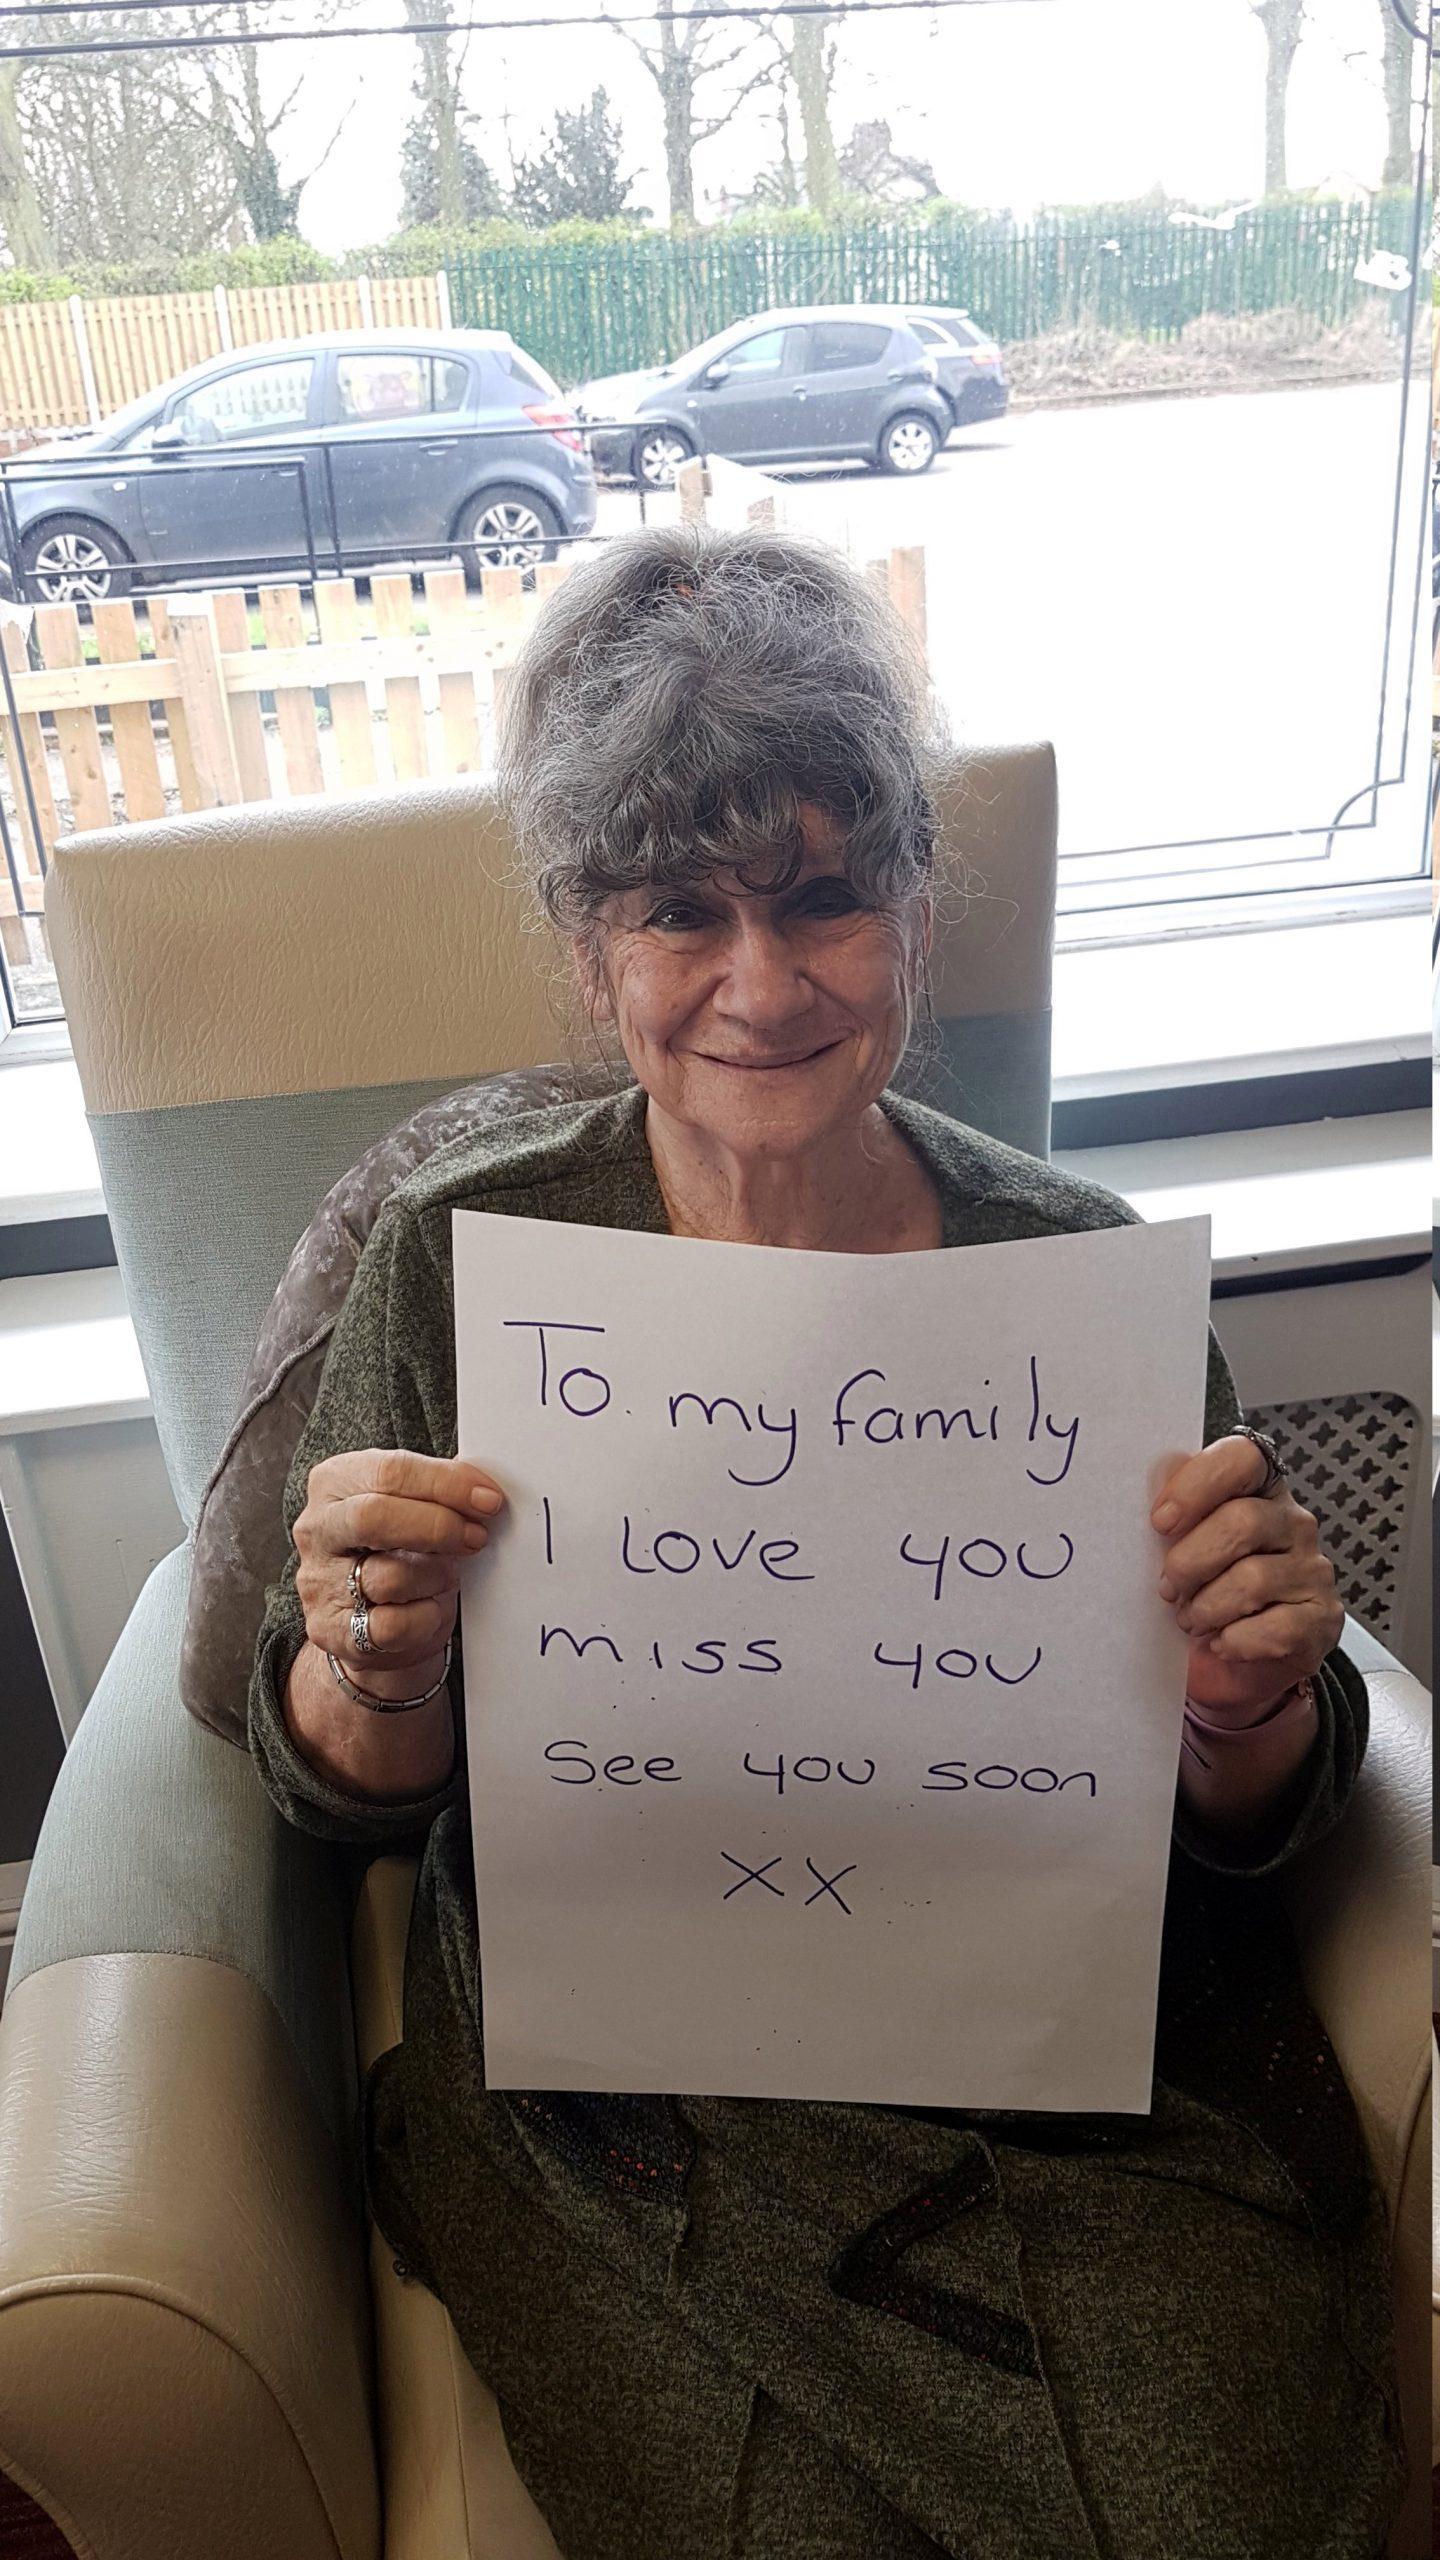 To. my family
I Love you
miss you
See you soon
XX